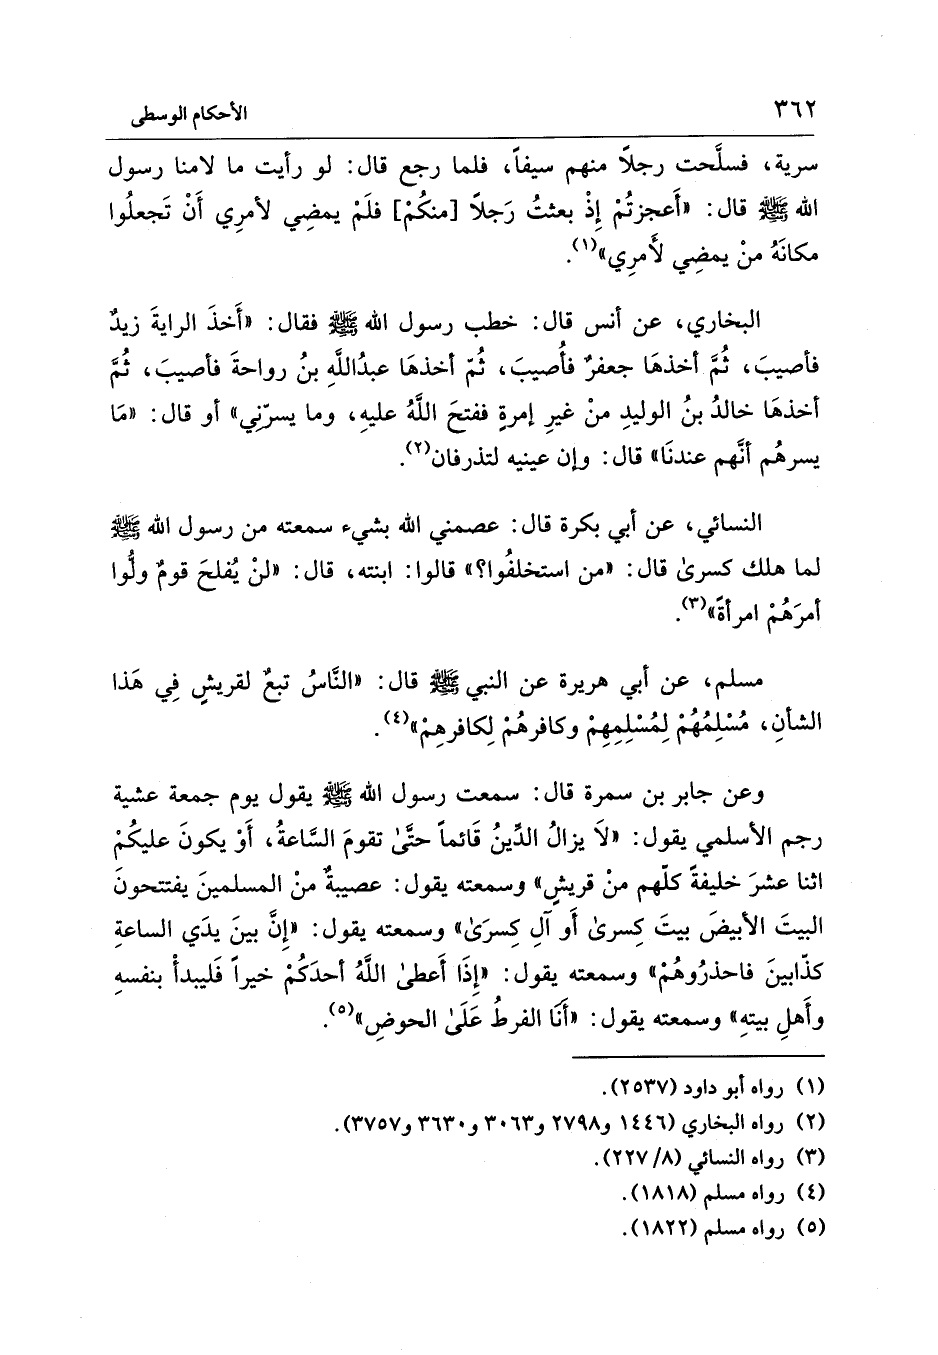 ٣٦٢ الأحكام الوسطى
سرية، فسلَّحت رجلاً منهم سيفاً، فلما رجع قال: لو رأيت ما لامنا رسول
الله ﷺ قال: «أَعجزتُمْ إِذْ بعثتُ رَجلاً [منكُمْ] فلَمْ يمضِي لأمرِي أَنْ تَجعلُوا
مكانَهُ منْ يمضِي لأَمرِي»(١).
البخاري، عن أنس قال: خطب رسول الله ﷺ فقال: «أَخذَ الرايةَ زيدٌ
فأصيبَ، ثُمَّ أخذهَا جعفرٌ فأُصيبَ، ثُمّ أخذهَا عبدُاللَّهِ بنُ رواحةَ فأصيبَ، ثُمَّ
أخذهَا خالدُ بنُ الوليدِ منْ غيرِ إمرةٍ ففتحَ اللَّهُ عليهِ، وما يسرّني» أو قال: «مَا
يسرهُم أنَّهم عندنَا» قال: وإن عينيه لتذرفان(٢).
النسائي، عن أبي بكرة قال: عصمني الله بشيء سمعته من رسول الله ﷺ
لما هلك كسرىٰ قال: «من استخلفُوا؟» قالوا: ابنته، قال: «لنْ يُفلحَ قومٌ ولُّوا
أمرَهُمْ امرأةً»(٣).
مسلم، عن أبي هريرة عن النبي ﷺ قال: «النَّاسُ تبعٌ لقريشٍ فِي هَذا
الشأنِ، مُسْلِمُهُمْ لِمُسْلِمِهِمْ وكافرهُمْ لِكافرهِمْ»(٤).
وعن جابر بن سمرة قال: سمعت رسول الله ﷺ يقول يوم جمعة عشية
رجم الأسلمي يقول: «لاَ يزالُ الدِّينُ قَائماً حتَّىٰ تقومَ السَّاعةُ، أَوْ يكونَ عليكُمْ
اثنا عشرَ خليفةً كلّهم منْ قريشٍ» وسمعته يقول: عصيبةٌ منْ المسلمينَ يفتتحونَ
البيتَ الأبيضَ بيتَ كِسرىٰ أَو آلِ كِسرَىٰ» وسمعته يقول: «إِنَّ بينَ يدَي الساعةِ
كذّابينَ فاحذرُوهُمْ» وسمعته يقول: «إِذَا أَعطىٰ اللَّهُ أحدَكُمْ خيراً فَليبدأْ بنفسهِ
وأَهلِ بيتهِ» وسمعته يقول: «أَنَا الفرطُ عَلَىٰ الحوضِ»(٥).
(١) رواه أبو داود (٢٥٣٧).
(٢) رواه البخاري (١٤٤٦ و٢٧٩٨ و٣٠٦٣ و٣٦٣٠ و٣٧٥٧).
(٣) رواه النسائي (٨/ ٢٢٧).
(٤) رواه مسلم (١٨١٨).
(٥) رواه مسلم (١٨٢٢).